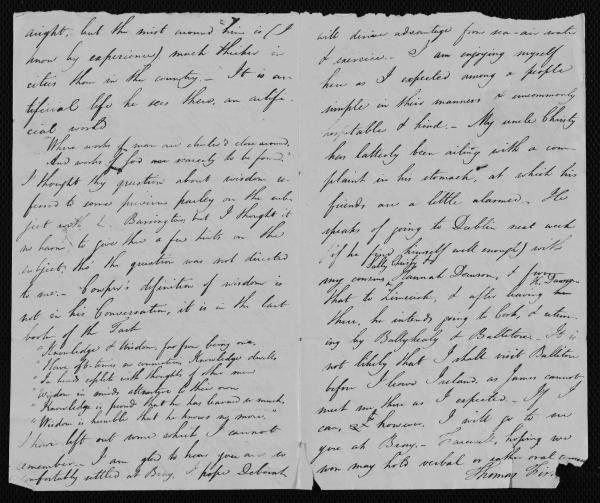 aright, but the mist around him is (I
know by experience) much thicker in
cities than in the country. — It is ar-
tificial life he sees there, an artifi-
cial world
"Where works of man are cluster'd close around,
And works of God are scarcely to be found."
I thought thy question about wisdom re-
ferred to some previous parley on the sub-
ject with L. Barrington, but I thought it
no harm to give thee a few hints on the
subject, tho' the question was not directed
to me. — Cowper's definition of wisdom is
not in his Conversation, it is in the last
book of the Task
"Knowledge & Wisdom, far from being one,
"Have oft-times no connexion. Knowledge dwells
"In heads replete with thoughts of other men
Wisdom in minds attentive to their own
"Knowledge is proud that he has learned so much,
"Wisdom is humble that he knows no more."
I have left out some which I cannot
remember. — I am glad to hear you are so
comfortably settled at Bray. I hope Deborah
will derive advantage from sea-air water
& exercise. — I am enjoying myself
here as I expected among a people
simple in their manners & uncommonly
& kind. — My uncle Christy
has latterly been ailing with a com-
plaint in his stomach, at which his
friends are a little alarmed. — He
speaks of going to Dublin next week
(if he find himself well enough) with
my cousins Hannah Dawson, & from
that to Limerick, & after leaving
there, he intends going to Cork, & return-
ing by & Ballitore. — It is
not likely that I shall visit Ballitore
before I leave Ireland, as James cannot
meet me there as I expected. — If I
can, however, I will go to see
you at Bray. — Farewell, hoping we
soon may hold verbal or rather oral
Thomas